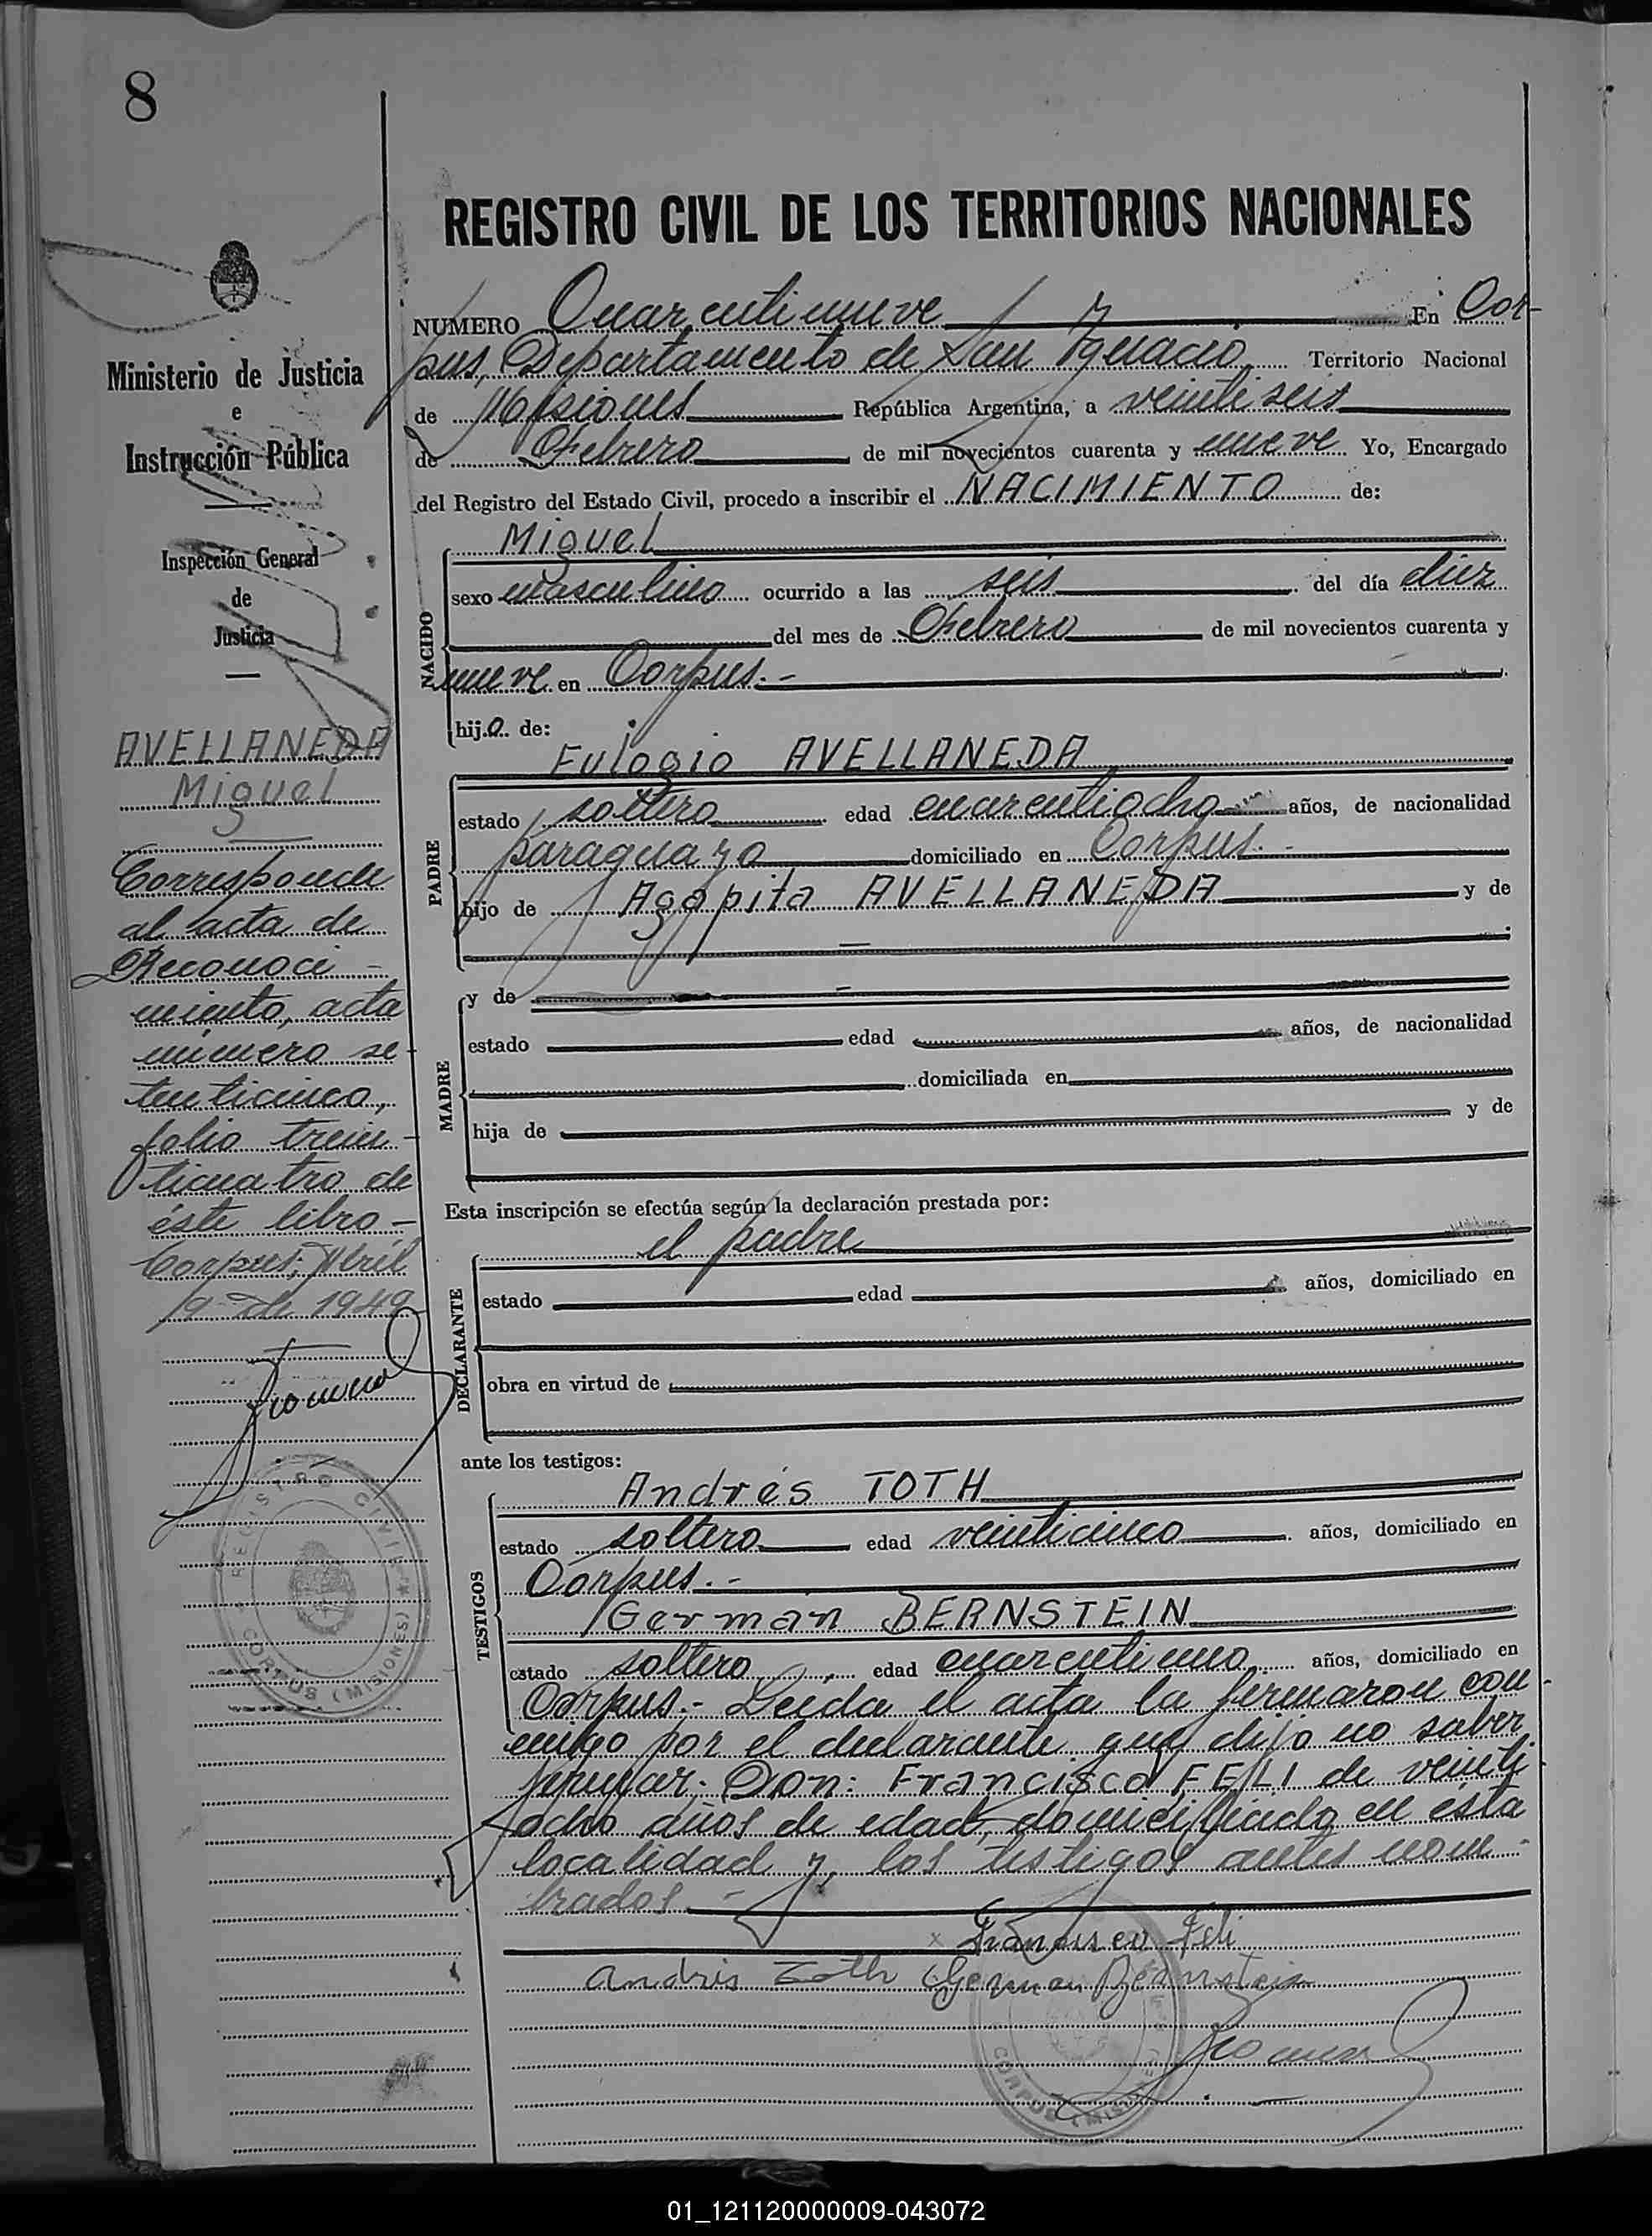 8
REGISTRO CIVIL DE LOS TERRITORIOS NACIONALES
Ministerio de Justicia
e
Instrucción Pública
Inspección General
de
Justicia
AVELLANEDA
Miguel
Corresponde
al acta de
Reconoci-
miento, acta
número se-
tenticinco,
folio trein-
ticuatro de
éste libro-
Corpus, Abril
19 de 1949
REGISTRO CIVIL
CORPUS (MISIONES)
NUMERO Cuarentinueve En Cor-
pus, Departamento de San Ignacio Territorio Nacional
de Misiones República Argentina, a veintiseis
de Febrero de mil novecientos cuarenta y nueve Yo, Encargado
del Registro del Estado Civil, procedo a inscribir el NACIMIENTO de:
NACIDO
Miguel
sexo masculino ocurrido a las seis del día diez
del mes de Febrero de mil novecientos cuarenta y
nueve en Corpus.-
hijo de:
PADRE
Eulogio AVELLANEDA
estado soltero edad cuarentiocho años, de nacionalidad
paraguayo domiciliado en Corpus.-
hijo de Agapita AVELLANEDA y de
MADRE
y de
estado edad años, de nacionalidad
domiciliada en
hija de y de
Esta inscripción se efectúa según la declaración prestada por:
DECLARANTE
el padre
estado edad años, domiciliado en
obra en virtud de
ante los testigos:
TESTIGOS
Andrés TOTH
estado soltero edad veinticinco años, domiciliado en
Corpus.-
German BERNSTEIN
estado soltero edad cuarentiuno años, domiciliado en
Corpus.- Leida el acta la firmaron con-
migo por el declarante que dijo no saber
firmar. Don: Francisco FELI de veinti-
ocho años de edad, domiciliado en ésta
localidad y los testigos antes nom-
brados.-
x Francisco Feli
Andrés Toth German Bernstein
CORPUS (MISIONES)
01_121120000009-043072